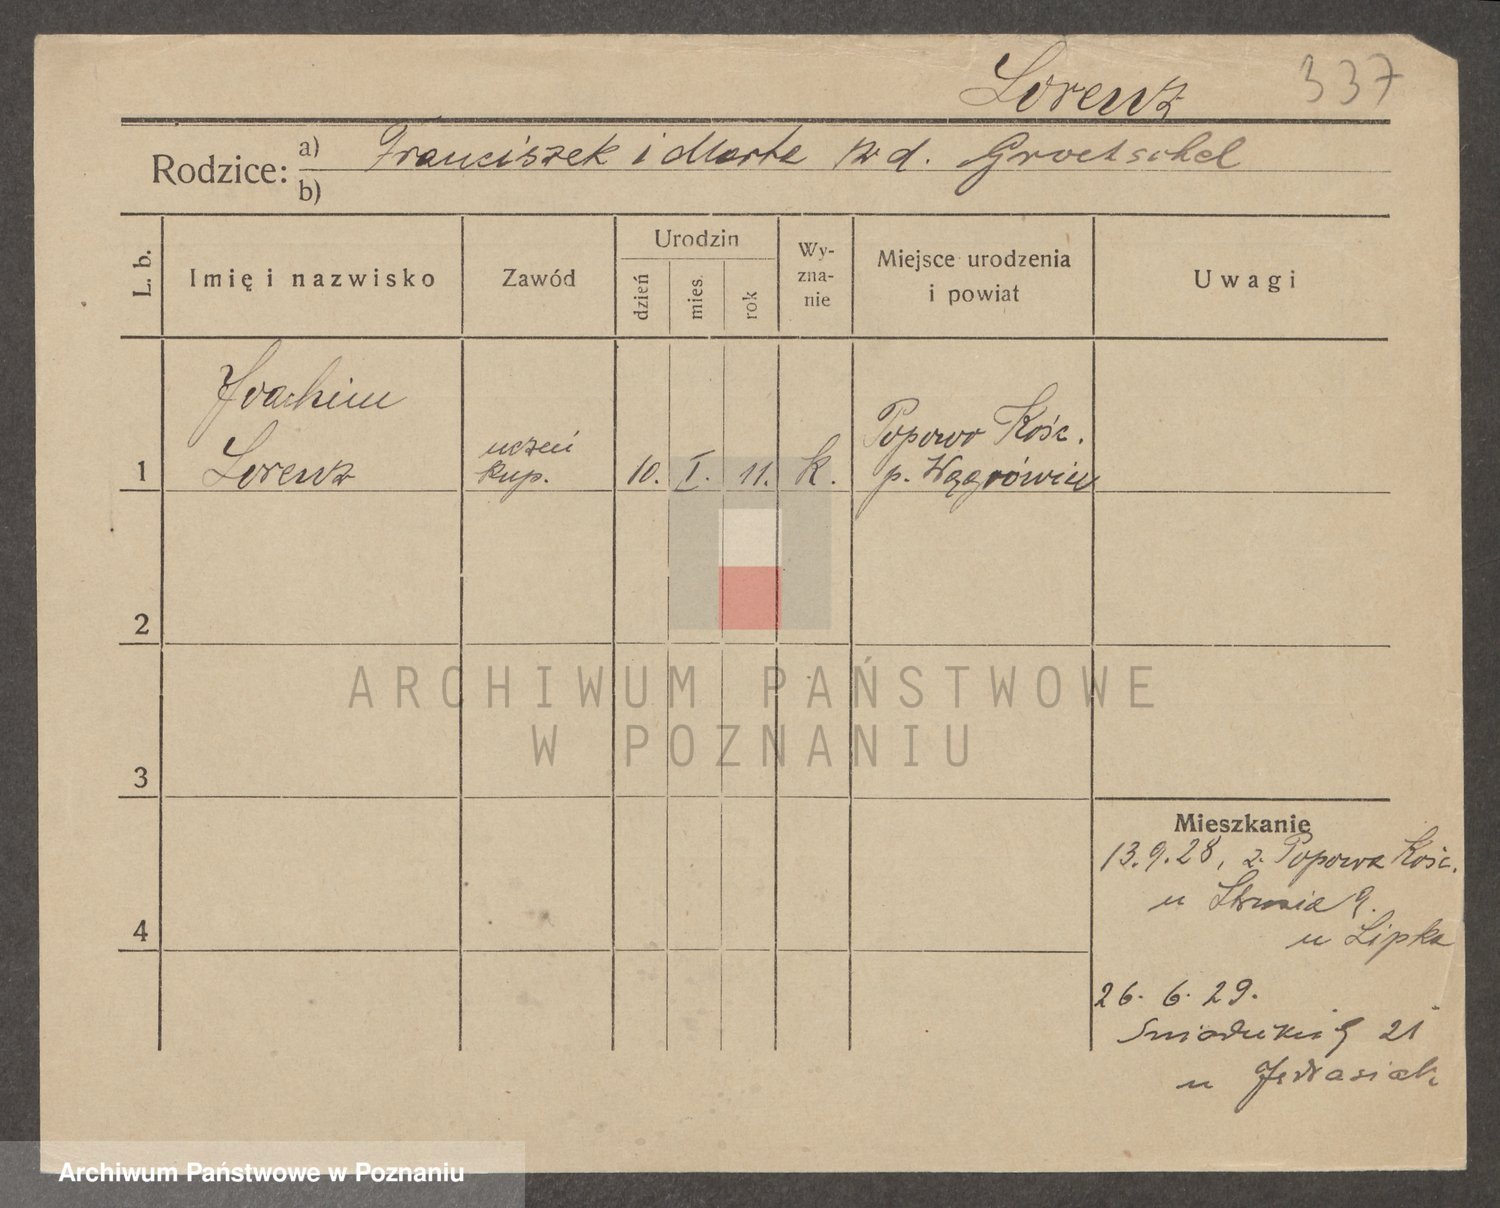 Lorenz 337
Rodzice: a) Franciszek i Marta z d. Groetschel
b)
L. b. Imię i nazwisko Zawód Urodzin dzień mies. rok Wy-zna-nie Miejsce urodzenia i powiat Uwagi
Joachim
1 Lorenz uczeń kup. 10. I. 11. k. Popowo Kośc. p. Wągrówiec
2
ARCHIWUM PAŃSTWOWE
W POZNANIU
3
Mieszkanie
13.9.28, z Popowa Kośc.
u 9.
4
u Lipka
26. 6. 29.
21
u
Archiwum Państwowe w Poznaniu